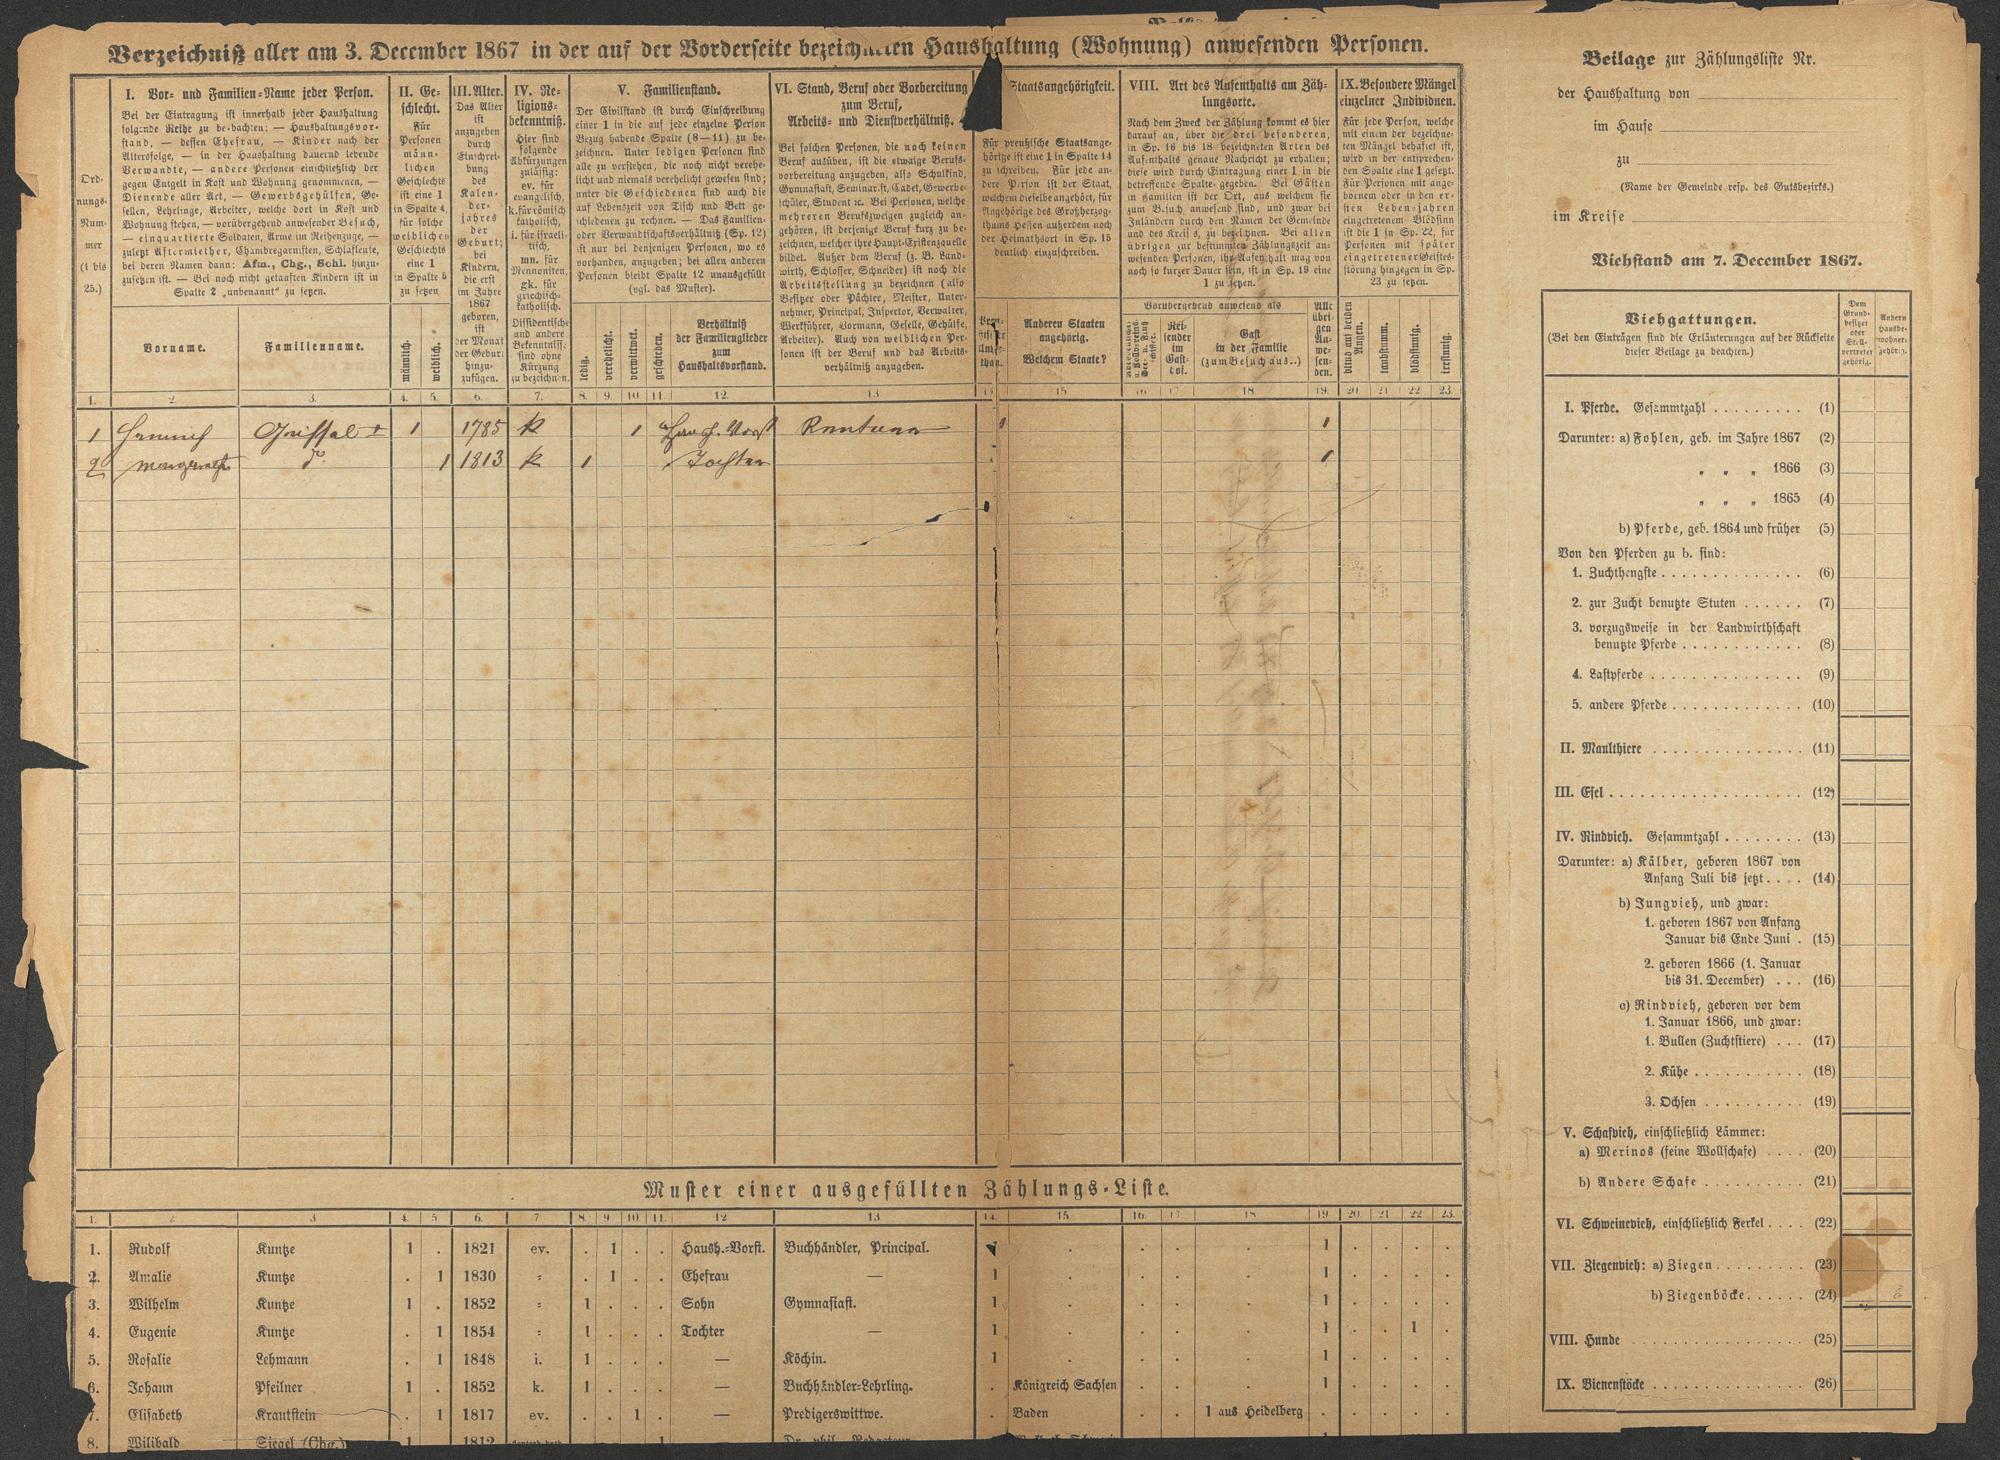 Verzeichniß aller am 3. December 1867 in der auf der Vorderseite bezeichneten Haushaltung (Wohnung) anwesenden Personen.
Ord-
nungs-
Num-
mer
(1 bis
25.)
I. Vor- und Familien-Name jeder Person.
Bei der Eintragung ist innerhalb jeder Haushaltung
folgende Reihe zu beobachten: — Haushaltungsvor-
stand, — dessen Ehefrau, — Kinder nach der
Altersfolge, — in der Haushaltung dauernd lebende
Verwandte, — andere Personen einschließlich der
gegen Entgelt in Kost und Wohnung genommenen, —
Dienende aller Art, — Gewerbsgehülfen, Ge-
sellen, Lehrlinge, Arbeiter, welche dort in Kost und
Wohnung stehen, — vorübergehend anwesender Besuch,
— einquartierte Soldaten, Arme im Reihenzuge, —
zuletzt Aftermiether, Chambregarnisten, Schlafleute,
bei deren Namen dann: Afm., Chg., Schl. hinzu-
zusetzen ist. — Bei noch nicht getauften Kindern ist in
Spalte 2 „unbenannt“ zu setzen.
Vorname.
Familienname.
II. Ge-
schlecht.
Für
Personen
männ-
lichen
Geschlechts
ist eine 1
in Spalte 4,
für solche
weiblichen
Geschlechts
eine 1
in Spalte 5
zu setzen
männlich.
weiblich.
III. Alter.
Das Alter
ist
anzugeben
durch
Einschrei-
bung
des
Kalen-
der-
jahres
der
Geburt;
bei
Kindern,
die erst
im Jahre
1867
geboren,
ist
der Monat
der Geburt
hinzu-
zufügen.
IV. Re-
ligions-
bekenntniß.
Hier sind
folgende
Abkürzungen
zulässig:
ev. für
evangelisch,
k. für römisch
katholisch,
i. für israeli-
tisch,
mn. für
Mennoniten,
gk. für
griechisch-
katholisch.
Dissidentische
und andere
Bekenntnisse
sind ohne
Kürzung
zu bezeichnen.
V. Familienstand.
Der Civilstand ist durch Einschreibung
einer 1 in die auf jede einzelne Person
Bezug habende Spalte (8—11) zu be-
zeichnen. Unter ledigen Personen sind
alle zu verstehen, die noch nicht verehe-
licht und niemals verehelicht gewesen sind;
unter die Geschiedenen sind auch die
auf Lebenszeit von Tisch und Bett ge-
schiedenen zu rechnen. — Das Familien-
oder Verwandtschaftsverhältniß (Sp. 12)
ist nur bei denjenigen Personen, wo es
vorhanden, anzugeben; bei allen anderen
Personen bleibt Spalte 12 unausgefüllt
(vgl. das Muster).
ledig.
verehelicht.
verwittwet.
geschieden.
Verhältniß
der Familienglieder
zum
Haushaltsvorstand.
VI. Stand, Beruf oder Vorbereitung
zum Beruf,
Arbeits- und Dienstverhältniß.
Bei solchen Personen, die noch keinen
Beruf ausüben, ist die etwaige Berufs-
vorbereitung anzugeben, also Schulkind,
Gymnasiast, Seminarist, Cadet, Gewerbe-
schüler, Student ꝛc. Bei Personen, welche
mehreren Berufszweigen zugleich an-
gehören, ist derjenige Beruf kurz zu be-
zeichnen, welcher ihre Haupt-Existenzquelle
bildet. Außer dem Beruf (z. B. Land-
wirth, Schlosser, Schneider) ist noch die
Arbeitsstellung zu bezeichnen (also
Besitzer oder Pächter, Meister, Unter-
nehmer, Principal, Inspector, Verwalter,
Werkführer, Vormann, Geselle, Gehülfe,
Arbeiter). Auch von weiblichen Per-
sonen ist der Beruf und das Arbeits-
verhältniß anzugeben.
Staatsangehörigkeit.
Für preußische Staatsange-
hörige ist eine 1 in Spalte 14
zu schreiben. Für jede an-
dere Person ist der Staat,
welchem dieselbe angehört, für
Angehörige des Großherzog-
thums Hessen außerdem noch
der Heimathsort in Sp. 15
deutlich einzuschreiben.
Anderen Staaten
angehörig.
Welchem Staate?
VIII. Art des Aufenthalts am Zäh-
lungsorte.
Nach dem Zweck der Zählung kommt es hier
darauf an, über die drei besonderen,
in Sp. 16 bis 18 bezeichneten Arten des
Aufenthalts genaue Nachricht zu erhalten;
diese wird durch Eintragung einer 1 in die
betreffende Spalte gegeben. Bei Gästen
in Familien ist der Ort, aus welchem sie
zum Besuch anwesend sind, und zwar bei
Inländern durch den Namen der Gemeinde
und des Kreises, zu bezeichnen. Bei allen
übrigen zur bestimmten Zählungszeit an-
wesenden Personen, ihr Aufenthalt mag von
noch so kurzer Dauer sein, ist in Sp. 19 eine
1 zu setzen.
Vorübergehend anwesend als
Rei-
sender
im
Gast-
hof.
Gast
in der Familie
(zum Besuch aus..)
Alle
übri-
gen
An-
we-
sen-
den.
IX. Besondere Mängel
einzelner Individuen.
Für jede Person, welche
mit einem der bezeichne-
ten Mängel behaftet ist,
wird in der entsprechen-
den Spalte eine 1 gesetzt.
Für Personen mit ange-
bornem oder in den er-
sten Lebensjahren
eingetretenem Blödsinn
ist die 1 in Sp. 22, für
Personen mit später
eingetretener Geistes-
störung hingegen in Sp.
23 zu setzen.
blind auf beiden
Augen.
taubstumm.
blödsinnig.
irrsinnig.
1. 2 3. 4. 5. 6. 7. 8. 9. 10. 11. 12. 13 15 16 17. 18. 19. 20. 21. 22. 23.
1 Heinrich 1 1785 k 1 Haush. Vorst Rentner 1 1
2 Margareth do 1 1813 k 1 Tochter 1
Muster einer ausgefüllten Zählungs-Liste.
1. 2 3 4. 5. 6. 7 8. 9. 10. 11. 12 13 14. 15. 16. 17. 18 19 20. 21. 22 23.
1. Rudolf Kuntze 1 . 1821 ev. . 1 . . Haush.-Vorst. Buchhändler, Principal. 1 . . . . 1 . . . .
2. Amalie Kuntze . 1 1830 = . 1 . . Ehefrau — 1 . . . . 1 . . . .
3. Wilhelm Kuntze 1 . 1852 = 1 . . . Sohn Gymnasiast. 1 . . . . 1 . . . .
4. Eugenie Kuntze . 1 1854 = 1 . . . Tochter — 1 . . . . 1 . . 1 .
5. Rosalie Lehmann . 1 1848 i. 1 . . . — Köchin. 1 . . . . 1 . . . .
6. Johann Pfeilner 1 . 1852 k. 1 . . . — Buchhändler-Lehrling. . Königreich Sachsen . . . 1 . . . .
7. Elisabeth Krautstein . 1 1817 ev. . . 1 . — Predigerswittwe. . Baden . . 1 aus Heidelberg . . . . .
8. Wilibald Siegel (Chg.) 1 1812 1 Dr. phil. Redacteur
Beilage zur Zählungsliste Nr.
der Haushaltung von
im Hause
zu
(Name der Gemeinde resp. des Gutsbezirks.)
im Kreise
Viehstand am 7. December 1867.
Viehgattungen.
(Bei den Einträgen sind die Erläuterungen auf der Rückseite
dieser Beilage zu beachten.)
Dem
Grund-
besitzer
oder
Stell-
vertreter
gehörig.
Andern
Hausbe-
wohnern
gehörig.
I. Pferde. Gesammtzahl . . . . . . . . . (1)
Darunter: a) Fohlen, geb. im Jahre 1867 (2)
„ „ „ 1866 (3)
„ „ „ 1865 (4)
b) Pferde, geb. 1864 und früher (5)
Von den Pferden zu b. sind:
1. Zuchthengste . . . . . . . . . . . . . . (6)
2. zur Zucht benutzte Stuten . . . . . . (7)
3. vorzugsweise in der Landwirthschaft
benutzte Pferde . . . . . . . . . . . . (8)
4. Lastpferde . . . . . . . . . . . . . . . (9)
5. andere Pferde . . . . . . . . . . . . . (10)
II. Maulthiere . . . . . . . . . . . . . . . (11)
III. Esel . . . . . . . . . . . . . . . . . . . (12)
IV. Rindvieh. Gesammtzahl . . . . . . . . (13)
Darunter: a) Kälber, geboren 1867 von
Anfang Juli bis jetzt . . . . (14)
b) Jungvieh, und zwar:
1. geboren 1867 von Anfang
Januar bis Ende Juni . (15)
2. geboren 1866 (1. Januar
bis 31. December) . . . (16)
c) Rindvieh, geboren vor dem
1. Januar 1866, und zwar:
1. Bullen (Zuchtstiere) . . . (17)
2. Kühe . . . . . . . . . . . (18)
3. Ochsen . . . . . . . . . . (19)
V. Schafvieh, einschließlich Lämmer:
a) Merinos (feine Wollschafe) . . . . (20)
b) Andere Schafe . . . . . . . . . . (21)
VI. Schweinevieh, einschließlich Ferkel . . . . (22)
VII. Ziegenvieh: a) Ziegen . . . . . . . . . (23)
b) Ziegenböcke . . . . . . (24)
VIII. Hunde . . . . . . . . . . . . . . . . . (25)
IX. Bienenstöcke . . . . . . . . . . . . . . . (26)